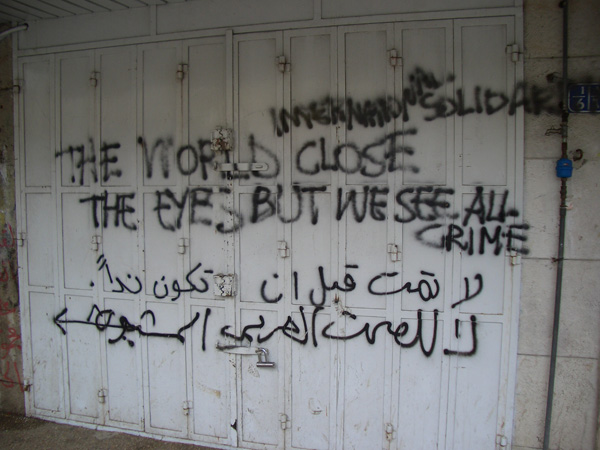 INTERNATIONAL SOLIDAR
THE WORLD CLOSE
THE EYES BUT WE SEE ALL
CRIME
لا تمت قبل ان تكون نداً.
لا للصمت العربي